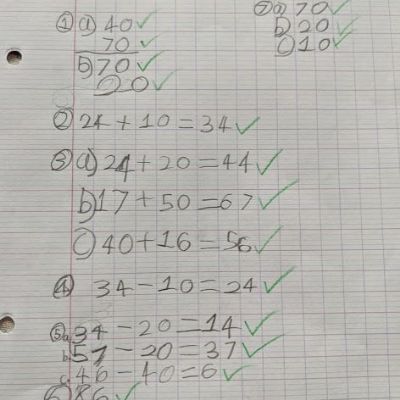 ① a) 40 ✓
70 ✓
b) 70 ✓
20 ✓
② 24 + 10 = 34 ✓
③ a) 24 + 20 = 44 ✓
b) 17 + 50 = 67 ✓
c) 40 + 16 = 56 ✓
④ 34 - 10 = 24 ✓
⑤ a. 34 - 20 = 14 ✓
b. 57 - 20 = 37 ✓
c. 46 - 40 = 6 ✓
⑥ 86 ✓
⑦ a) 70 ✓
b) 20 ✓
c) 10 ✓